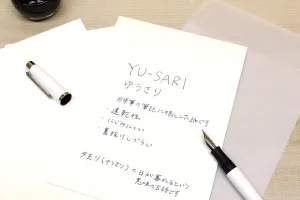 YU-SARI
ゆうさり
万年筆の筆記に特化した紙です
・速乾性
・にじみにくい
・裏抜けしづらい
夕去り(ゆうさり)=日が暮れるという
意味の古語です